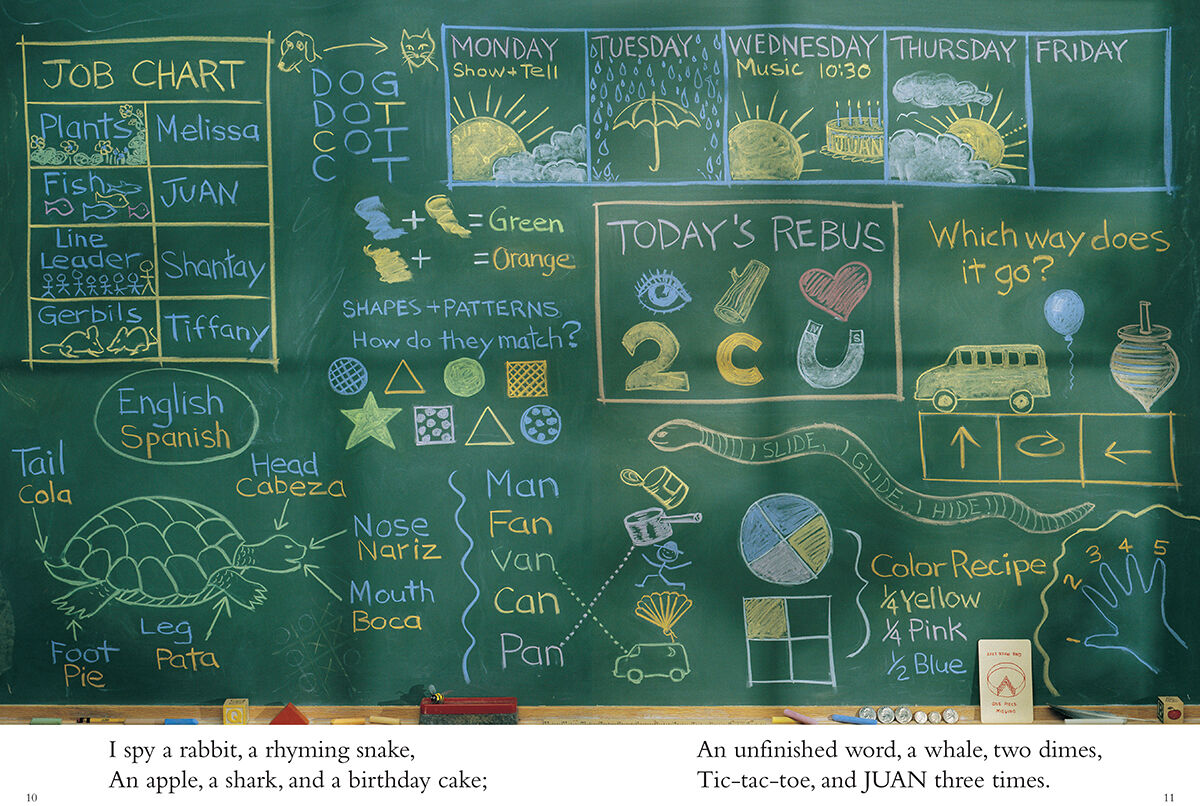 JOB CHART
Plants Melissa
Fish JUAN
Line Leader Shantay
Gerbils Tiffany
DOG
DOT
COT
C T
MONDAY
Show + Tell
TUESDAY
WEDNESDAY
Music 10:30
JUAN
THURSDAY
FRIDAY
+ = Green
+ = Orange
SHAPES + PATTERNS
How do they match?
TODAY'S REBUS
2 C
N S
Which way does
it go?
English
Spanish
Tail
Cola
Head
Cabeza
Nose
Nariz
Mouth
Boca
Leg
Pata
Foot
Pie
Man
Fan
Van
Can
Pan
I SLIDE, I GLIDE, I HIDE!
Color Recipe
1/4 Yellow
1/4 Pink
1/2 Blue
1 2 3 4 5
Q
ONE PIECE MISSING
ONE PIECE
MISSING
I spy a rabbit, a rhyming snake,
An apple, a shark, and a birthday cake;
An unfinished word, a whale, two dimes,
Tic-tac-toe, and JUAN three times.
10
11